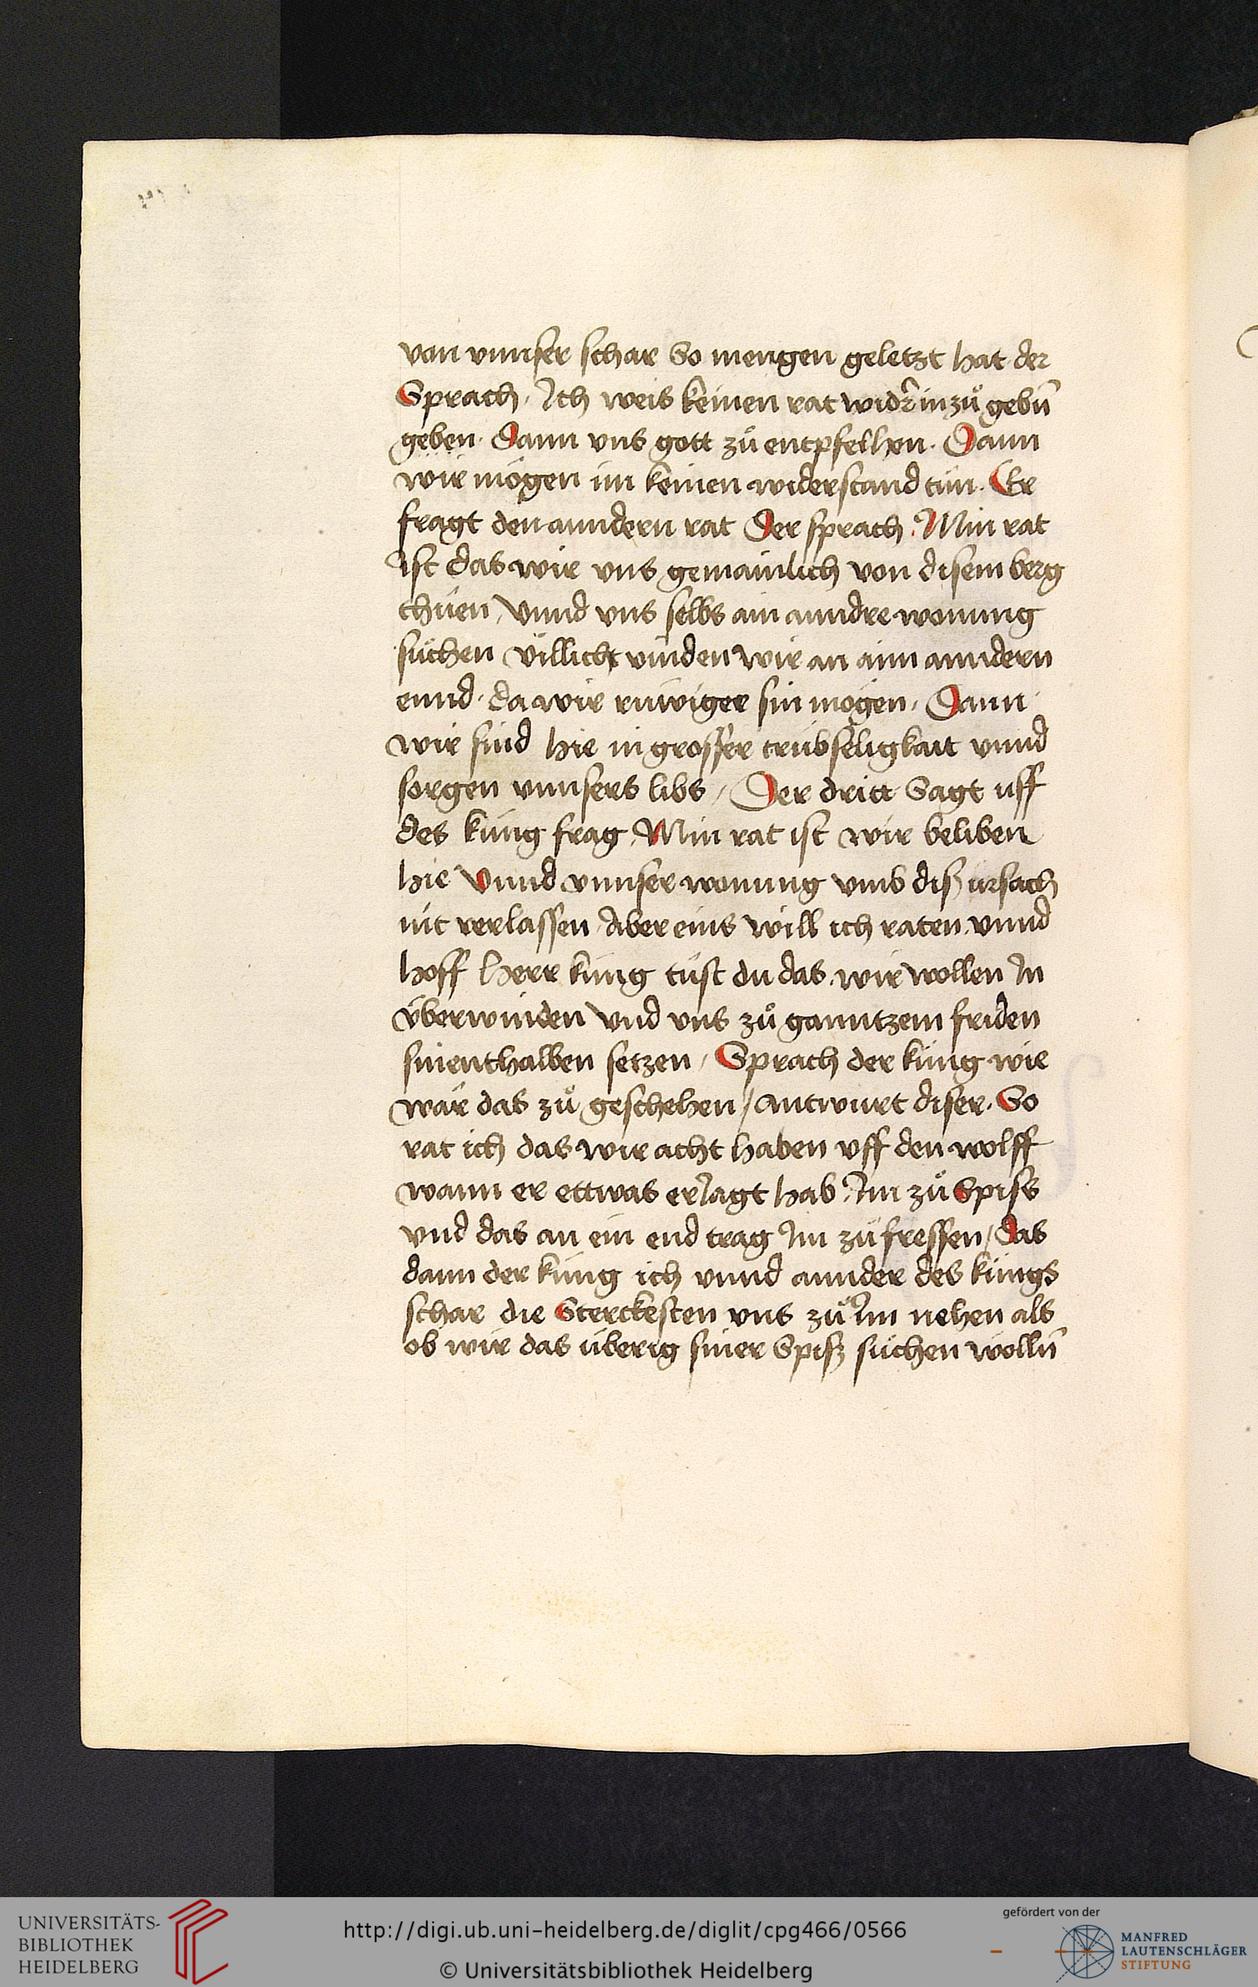 von vnnser schar So mengen geletzt hat der
Sprach. Ich weis keinen rat widr in zů gebn̄
geben. Dann vns gott zů entpfelhen. Dann
wir mögen im keinen widerstand tün. Er
fragt den anndern rat Der sprach. Min rat
ist das wir vns gemainlich von disem berg
thüen, Vnnd vns selbs ain anndre wonung
süchen villicht vinden wir an ainn anndern
ennd. da wir rüwiger sin mögen. Dann
wir sind hie in grosser trübseligkait vnnd
sorgen vnnsers libs, Der dritt Sagt uff
des küng frag, Min rat ist wir beliben
hie Vnnd vnnser wonung vmb diß ursach
nit verlassen Aber eins will ich raten vnnd
hoff herr küng tüst du das. wir wollen In
überwinden Vnd vns zů ganntzem friden
sinenthalben setzen, Sprach der küng wie
wär das zů geschehen / antwurt diser. So
rat ich das wir acht haben vff den wolff
wann er ettwas erJagt hab. Im zů Spiss
vnd das an ein end trag Im zü fressen / das
dann der küng ich vnnd annder des küngs
schar die Sterckesten vns zů Im nehen als
ob wir das überig siner Spiß süchen wölln̄
UNIVERSITÄTS-
BIBLIOTHEK
HEIDELBERG
http://digi.ub.uni-heidelberg.de/diglit/cpg466/0566
© Universitätsbibliothek Heidelberg
gefördert von der
MANFRED
LAUTENSCHLÄGER
STIFTUNG